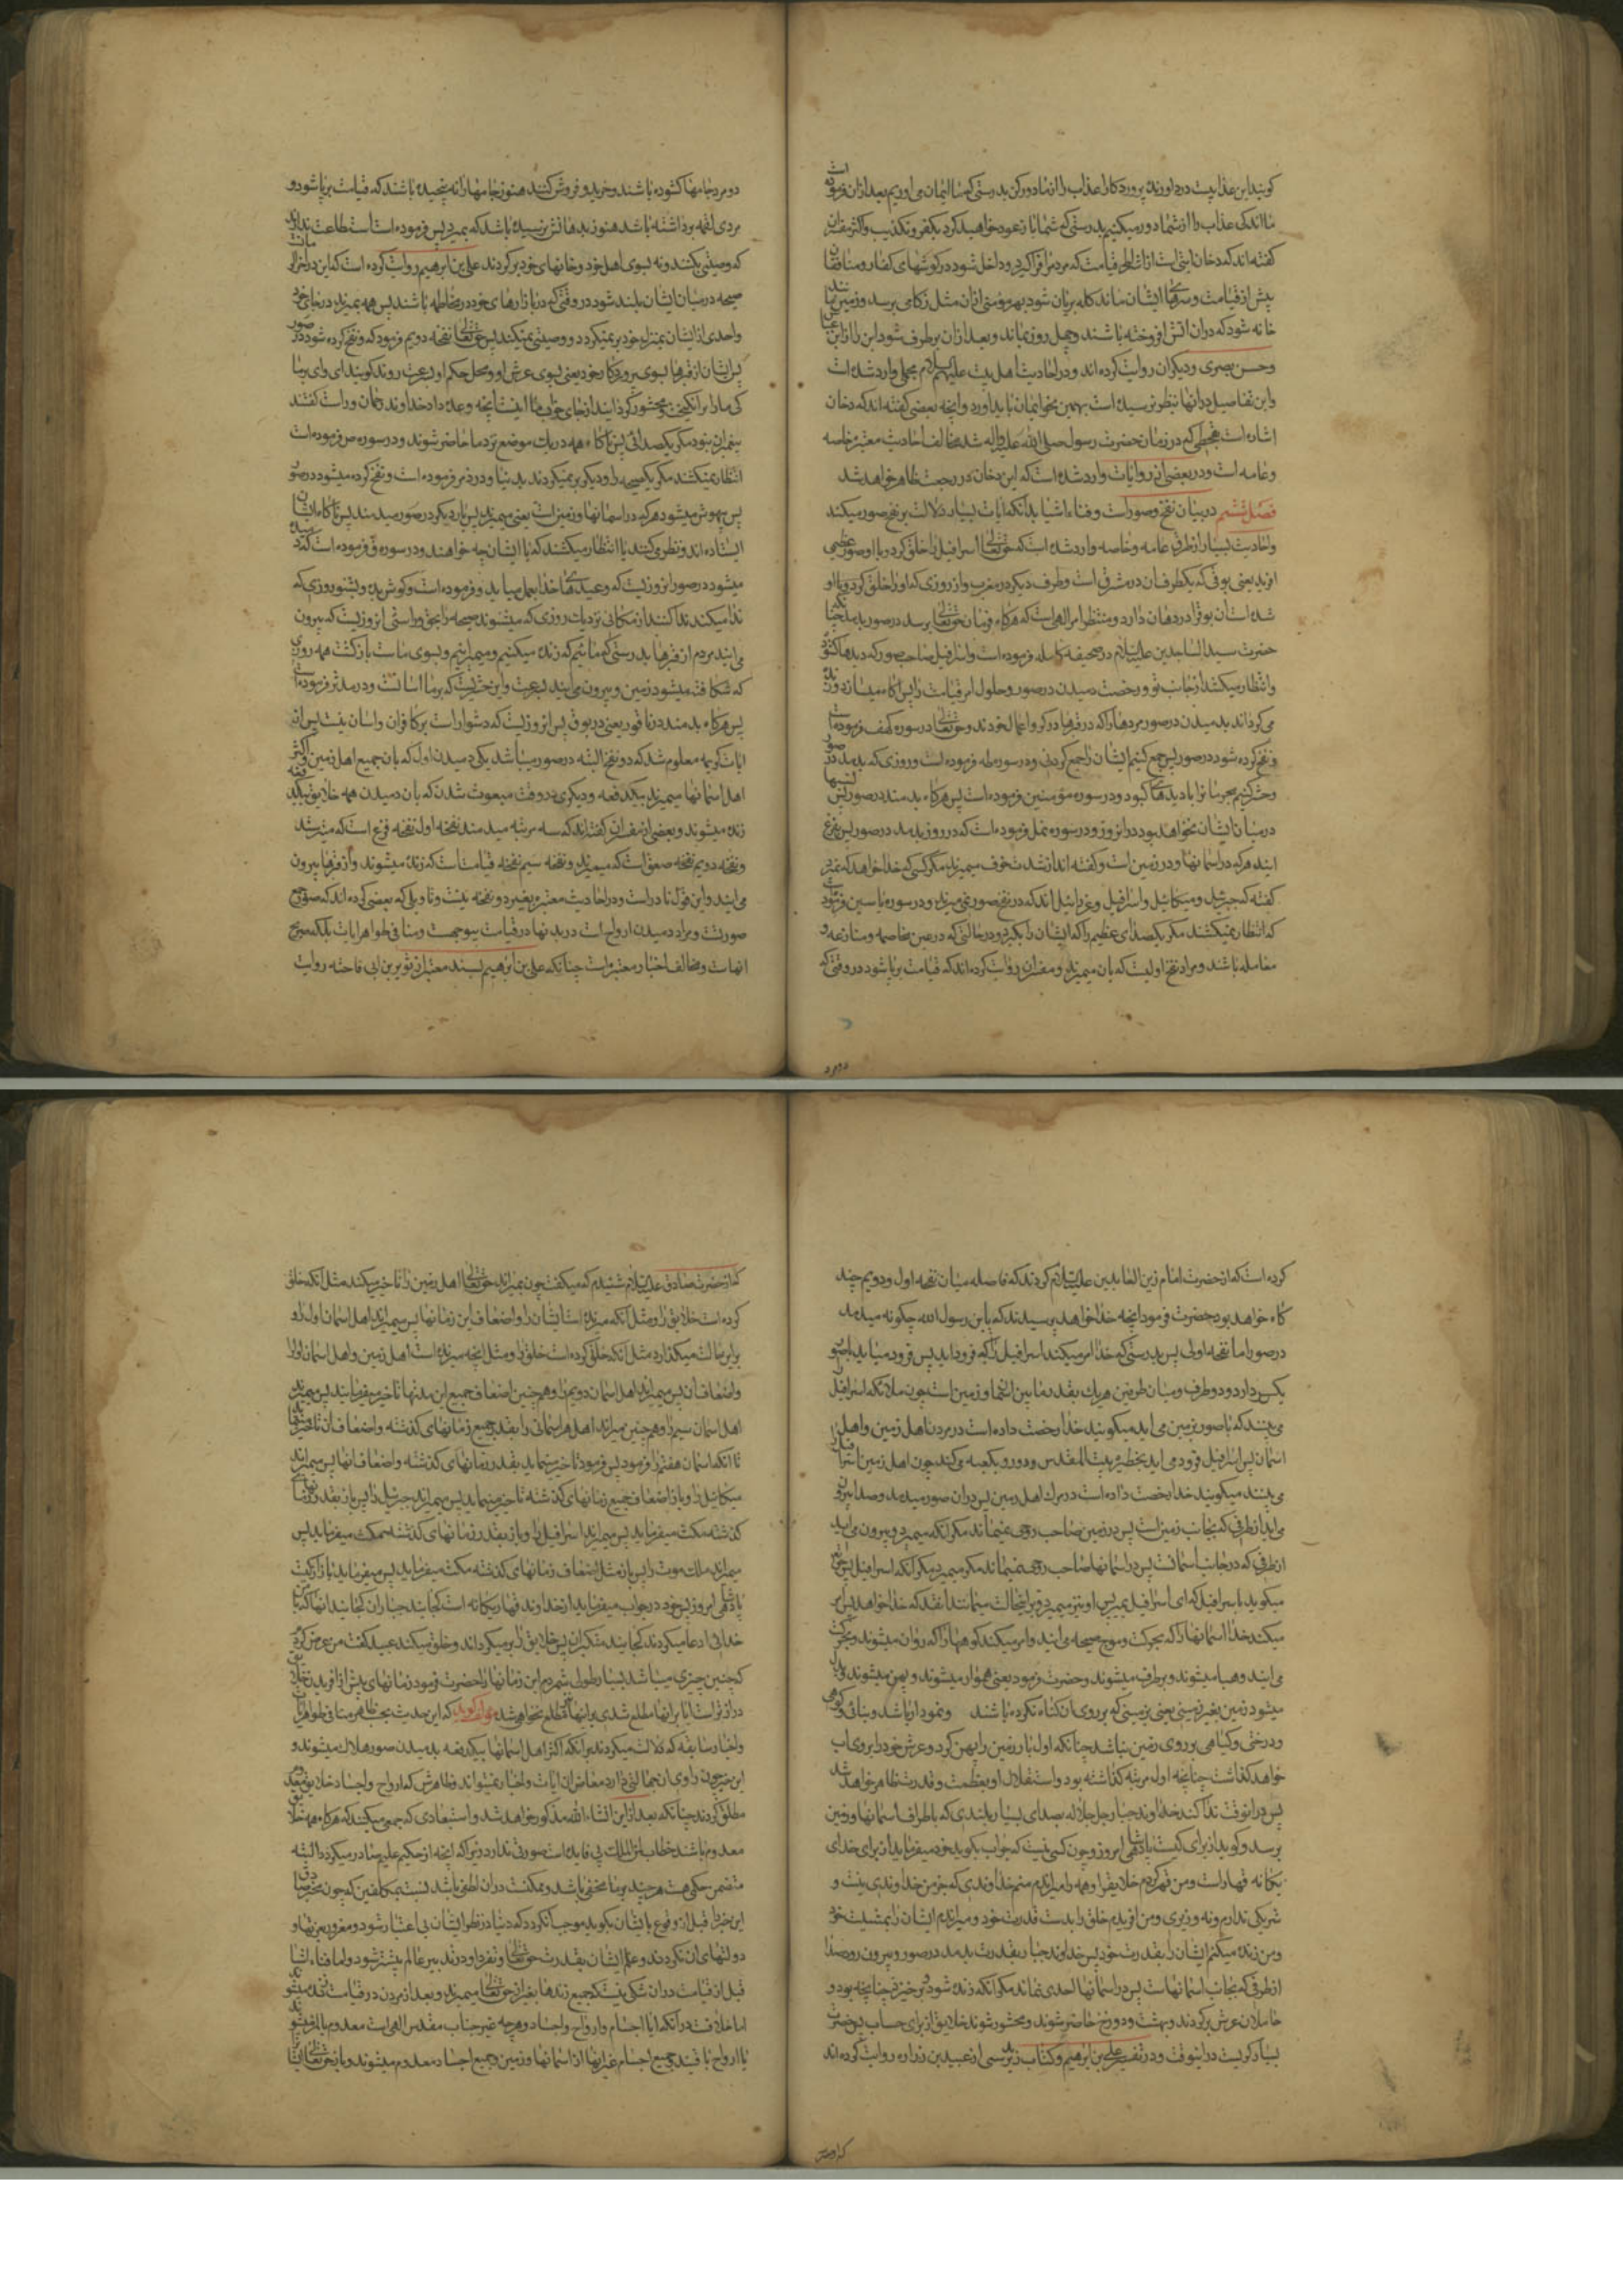 کویند این عذابیست درد اورنده پروردکارا عذاب را از ما دور کن بدرستی که ما ایمان می اوریم بعد ازان فرموده است
ما اندکی عذاب را از شما دور میکنیم بدرستی که شما باز عود خواهید کرد بکفر و تکذیب و اکثر مفسران
کفته اند که دخان ایتی است از اشراط قیامت که مردم را فرا کیرد و داخل شود در کوشهای کفار و منافقان
پیش از قیامت و سرهای ایشان مانند کله بریان شود بهر مؤمنی ازان مثل زکامی برسد و زمین مانند
خانه شود که دران اتش افروخته باشند و چهل روز بماند و بعد ازان برطرف شود این را از ابن عباس
و حسن بصری و دیکران روایت کرده اند و در احادیث اهل بیت علیهم السلام مجملی وارد شده است
و این تفاصیل درانها بنظر نرسیده است بهمین نحو ایمان باید اورد و انچه بعضی کفته اند که دخان
اشاره است بقحطی که در زمان حضرت رسول صلی الله علیه واله شد مخالف احادیث معتبره خاصه
و عامه است و در بعضی از روایات وارد شده است که این دخان در رجعت ظاهر خواهد شد
فصل ششم در بیان نفخ صور است و فناء اشیا بدانکه ایات بسیار دلالت بر نفخ صور میکند
و احادیث بسیار از طرق عامه و خاصه وارد شده است که حق تعالی اسرافیل را خلق کرد و با او صور عظیمی
افرید یعنی بوقی که یکطرف ان در مشرق است و طرف دیکر در مغرب و از روزی که او را خلق کرد و با او
شده است ان بوق را در دهان دارد و منتظر امر الهی است که هرکاه فرمان حق تعالی برسد در صور بدمد چنانکه
حضرت سید الساجدین علیه السلام در صحیفه کامله فرموده است و اسرافیل صاحب صور که دیدها کشوده
و انتظار میکشد از جانب تو رخصت دمیدن در صور و حلول امر قیامت را پس اکاه میسازد و زنده
می کرداند بدمیدن در صور مردها را که در قبرها در کرو اعمال خودند و حق تعالی در سوره کهف فرموده است
و نفخ کرده شود در صور پس جمع کنیم ایشان را جمع کردنی و در سوره طه فرموده است و روزی که بدمد در صور
و حشر کنیم مجرمان را با دیدهای کبود و در سوره مؤمنین فرموده است پس هرکاه بدمند در صور پس نسبها
در میان ایشان نخواهد بود در انروز و در سوره نمل فرموده است که در روز بدمد در صور پس بفزع
ایند هرکه در اسمانها و در زمین است و کفته اند از شدت خوف میمیرند مکر کسی که خدا خواهد که نمیرد
کفته که جبرئیل و میکائیل و اسرافیل و عزرائیل اند که در نفخ صور نمی میرند و در سوره یاسین فرموده است
که انتظار نمیکشند مکر یکصدای عظیم را که ایشان را بکیرد و درحالتی که در عین مخاصمه و منازعه و
معامله باشند و مراد نفخ اولیست که بان میمیرند و مفسران روایت کرده اند که قیامت برپا شود در وقتی که
دو مرد جامها کشوده باشند و خرید و فروش کنند هنوز جامها را نه پیچیده باشند که قیامت برپا شود و
مردی لقمه برداشته باشد هنوز بدهانش نرسیده باشد که بمیرد پس فرموده است استطاعت ندارند
که وصیتی بکنند و نه بسوی اهل خود و خانهای خود برکردند علی بن ابراهیم روایت کرده است که این در اخر الزمان است
صیحه در میان ایشان بلند شود در وقتی که در بازارهای خود در مخاطمه باشند پس همه بمیرند در جای خود
واحدی از ایشان بمنزل خود برنمیکردد و وصیتی نمیکند پس حق تعالی نفخه دویم فرمود که و نفخ کرده شود در صور
پس ایشان از قبرها بسوی پروردکار خود یعنی بسوی عرش او و محل حکم او بسرعت روند کویند ای وای بر ما
کی ما را برانکیخت و محشور کردانید از جای خواب ما اینست انچه وعده داد خداوند رحمان و راست کفتند
پیغمبران نبود مکر یکصدائی پس ناکاه همه در یک موضع نزد ما حاضر شوند و در سوره ص فرموده است
انتظار نمیکشند مکر یکصیحه را و دیکر برنمیکردند بدنیا و در زمر فرموده است و نفخ کرده میشود در صور
پس بیهوش میشود هرکه در اسمانها و زمین است یعنی میمیرند پس بار دیکر در صور میدمند پس ناکاه ایشان
ایستاده اند و نظر می کنند یا انتظار میکشند که با ایشان چه خواهند و در سوره ق فرموده است که دمیده
میشود در صور انروزیست که وعیدهای خدا بعمل میاید و فرموده است و کوش بده و بشنو روزی که
ندا میکند ندا کننده از مکانی نزدیک روزی که میشنوند صیحه را بحق و راستی انروزیست که بیرون
می ایند مردم از قبرها بدرستی که مائیم که زنده میکنیم و میمیرانیم و بسوی ماست بازکشت همه روزی
که شکافته میشود زمین و بیرون می ایند بسرعت و این حشریست که بر ما اسانست و در مدثر فرموده است
پس هرکاه بدمند در ناقور یعنی در بوق پس انروزیست که دشوار است بر کافران و اسان نیست پس از
ایات کریمه معلوم شد که دو نفخ البته در صور میباشد یکی دمیدن اول که بان جمیع اهل زمین و اکثر
اهل اسمانها میمیرند بیکدفعه و دیکری در وقت مبعوث شدن که بان دمیدن همه خلایق بیکدفعه
زنده میشوند و بعضی از مفسران کفته اند که سه مرتبه میدمند نفخه اول نفخه فزع است که میترسند
و نفخه دویم نفخه صعق است که میمیرند و نفخه سیم نفخه قیامت است که زنده میشوند و از قبرها بیرون
می ایند و این قول نادر است و در احادیث معتبره بغیر دو نفخه نیست و تاویلی که بعضی کرده اند که صور جمع
صورتست و مراد دمیدن ارواح است در بدنها در قیامت بیوجهست و منافی ظواهر ایات بلکه صریح
انهاست و مخالف اخبار معتبره است چنانکه علی بن ابراهیم بسند معتبر از ثویر بن ابی فاخته روایت
کرده است که از حضرت امام زین العابدین علیه السلام کردند که فاصله میان نفخه اول و دویم چند
کاه خواهد بود حضرت فرمود انچه خدا خواهد پرسیدند که یابن رسول الله چکونه میدمد
در صور اما نفخه اولی پس بدرستی که خدا امر میکند اسرافیل را که فرود اید پس فرود میاید با صور
یکسر دارد و دو طرف و میان طرفین هریک بقدر مابین اسمان و زمین است چون ملائکه اسرافیل را
می بینند که با صور بزمین می اید میکویند خدا رخصت داده است در مردن اهل زمین و اهل
اسمان پس اسرافیل فرود می اید بحظیره بیت المقدس و رو بکعبه می کند چون اهل زمین اسرافیل را
می بینند میکویند خدا رخصت داده است در مرک اهل زمین پس دران صور میدمد و صدا بیرون
می اید از طرفی که بجانب زمین است پس در زمین صاحب روحی نمیماند مکر انکه میمیرد و بیرون می اید
از طرفی که در جانب اسمانست پس در اسمانها صاحب روحی نمیماند مکر میمیرد مکر انکه اسرافیل پس حق تعالی
میکوید باسرافیل که ای اسرافیل بمیر پس او نیز میمیرد و بر اینحالت میمانند انقدر که خدا خواهد پس امر
میکند خدا اسمانها را که بحرکت و موج صیحه می ایند و امر میکند کوهها را که روان میشوند و بحرکت
می ایند و هبا میشوند و برطرف میشوند و حضرت فرمود یعنی هموار میشوند و پهن میشوند و بدل
میشود زمین بغیر زمینی یعنی بزمینی که بر روی ان کناه نکرده باشند و نمودار باشد و بنائی و کوهی
و درختی و کیاهی بر روی زمین نباشد چنانکه اول بار زمین را پهن کرد و عرش خود را بر روی اب
خواهد کذاشت چنانچه اول مرتبه کذاشته بود و استقلال او بعظمت و قدرت ظاهر خواهد شد
پس درانوقت ندا کند خداوند جبار جل جلاله بصدای بسیار بلندی که باطراف اسمانها و زمین
برسد و کوید از برای کیست پادشاهی امروز و چون کسی نیست که جواب بکوید خود میفرماید از برای خدای
یکانه قهار است و من قهر کردم خلایق را و همه را میراندم منم خداوندی که جز من خداوندی نیست و
شریکی ندارم و نه وزیری و من افریدم خلق را بدست قدرت خود و میراندم ایشان را بمشیت خود
و من زنده میکنم ایشان را بقدرت خود پس خداوند جبار بقدرت بدمد در صور و بیرون رود صدا
از طرفی که بجانب اسمانهاست پس در اسمانها احدی نماند مکر انکه زنده شود و برخیزد چنانچه بود و
حاملان عرش برکردند و بهشت و دوزخ حاضر شوند و محشور شوند خلایق از برای حساب پس حضرت
بسیار کریست درانوقت و در تفسیر علی بن ابراهیم و کتاب زید نرسی از عبید بن زراره روایت کرده اند
که از حضرت صادق علیه السلام شنیدم که میکفت چون بمیراند حق تعالی اهل زمین را تاخیر میکند مثل انکه خلق
کرده است خلایق را و مثل انکه میرانده است ایشان را و اضعاف این زمانها پس میمیراند اهل اسمان اول را و
براین حالت میکذارد مثل انکه خلق کرده است خلق را و مثل انچه میرانده است اهل زمین و اهل اسمان اول را
و اضعاف ان پس میمیراند اهل اسمان دویم را و هم چنین اضعاف جمیع این مدتها تاخیر میفرماید پس میمیراند
اهل اسمان سیم را و هم چنین میراند اهل هر اسمانی را بقدر جمیع زمانهای کذشته و اضعاف ان تاخیر میفرماید
تا انکه اسمان هفتم را فرمود پس فرمود تاخیر مینماید بقدر زمانهای کذشته و اضعاف انها پس میمیراند
میکائیل را و باز اضعاف جمیع زمانهای کذشته تاخیر مینماید پس میمیراند جبرئیل را پس باز بقدر زمانهای
کذشته مکث میفرماید پس میمیراند اسرافیل را و باز بقدر زمانهای کذشته مکث میفرماید پس
میمیراند ملک موت را پس باز مثل اضعاف زمانهای کذشته مکث میفرماید پس میفرماید باز از کیست
پادشاهی امروز پس خود در جواب میفرماید از خداوند قهار یکانه است کجایند جباران کجایند انها که با من
خدائی ادعا میکردند کجایند متکبران پس خلایق را برمیکرداند و خلق میکند عبید کفت من عرض کردم
که چنین چیزی میباشد بسیار طولی شمردم این زمانها را حضرت فرمود زمانهای پیش از افریدن خلایق
دراز تر است ایا برانها مطلع شدی برانها مطلع نخواهی شد مؤلف کوید که این حدیث بحسب ظاهر منافی ظواهر ایات
و اخبار سابقه که دلالت میکردند برانکه اکثر اهل اسمانها بیکدفعه بدمیدن صور هلاک میشوند و
این خبر چون راوی ان جهالتی دارد معارض ان ایات و اخبار نمیتواند و ظاهرش که ارواح و اجساد خلایق معدوم
مطلق کردند چنانکه بعد ازاین انشاء الله مذکور خواهد شد و استبعادی که جمعی میکنند که هرکاه همه خلایق
معدوم باشند خطاب لمن الملک بی فایده است صورتی ندارد زیراکه انچه از حکیم علیم صادر میکردد البته
متضمن حکمتی هست هر چند بر ما مخفی باشد و ممکنست دران لطفی باشد نسبت بمکلفین که چون مخبر صادق
این خبر را قبل از وقوع بایشان بکوید موجب ان کردد که دنیا در نظر ایشان بی اعتبار شود و مغرور بعزتها و
دولتهای ان نکردند و علم ایشان بقدرت حق تعالی و تفرد او در تدبیر عالم بیشتر شود و اما فناء اشیا
قبل از قیامت دران شکی نیست که جمیع زندها بغیر از حق تعالی میمیرند و بعد از مردن در قیامت زنده میشوند
اما خلافست درانکه ایا اجسام و ارواح و اجساد و هرچه غیر جناب مقدس الهی است معدوم بالمره میشوند
یا ارواح باقیند و جمیع اجسام غیر انها از اسمانها و زمین و جمیع اجساد معدوم میشوند و باز حق تعالی ایشان را